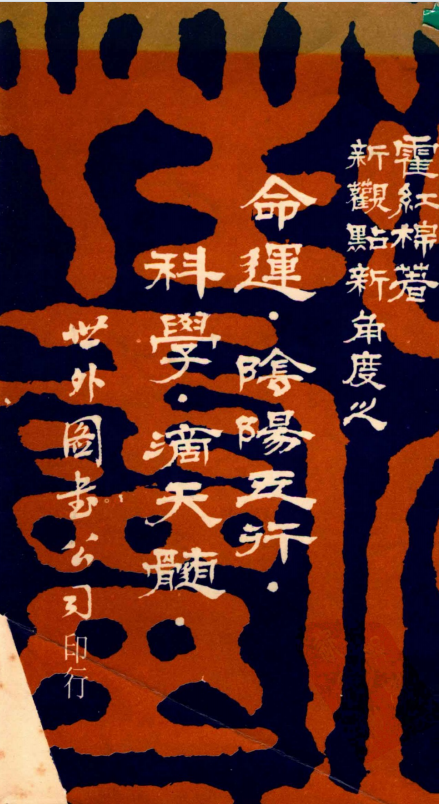 霍紅棉著
新觀點新角度之
命運·陰陽五行·
科學·滴天髓·
世外圖書公司印行